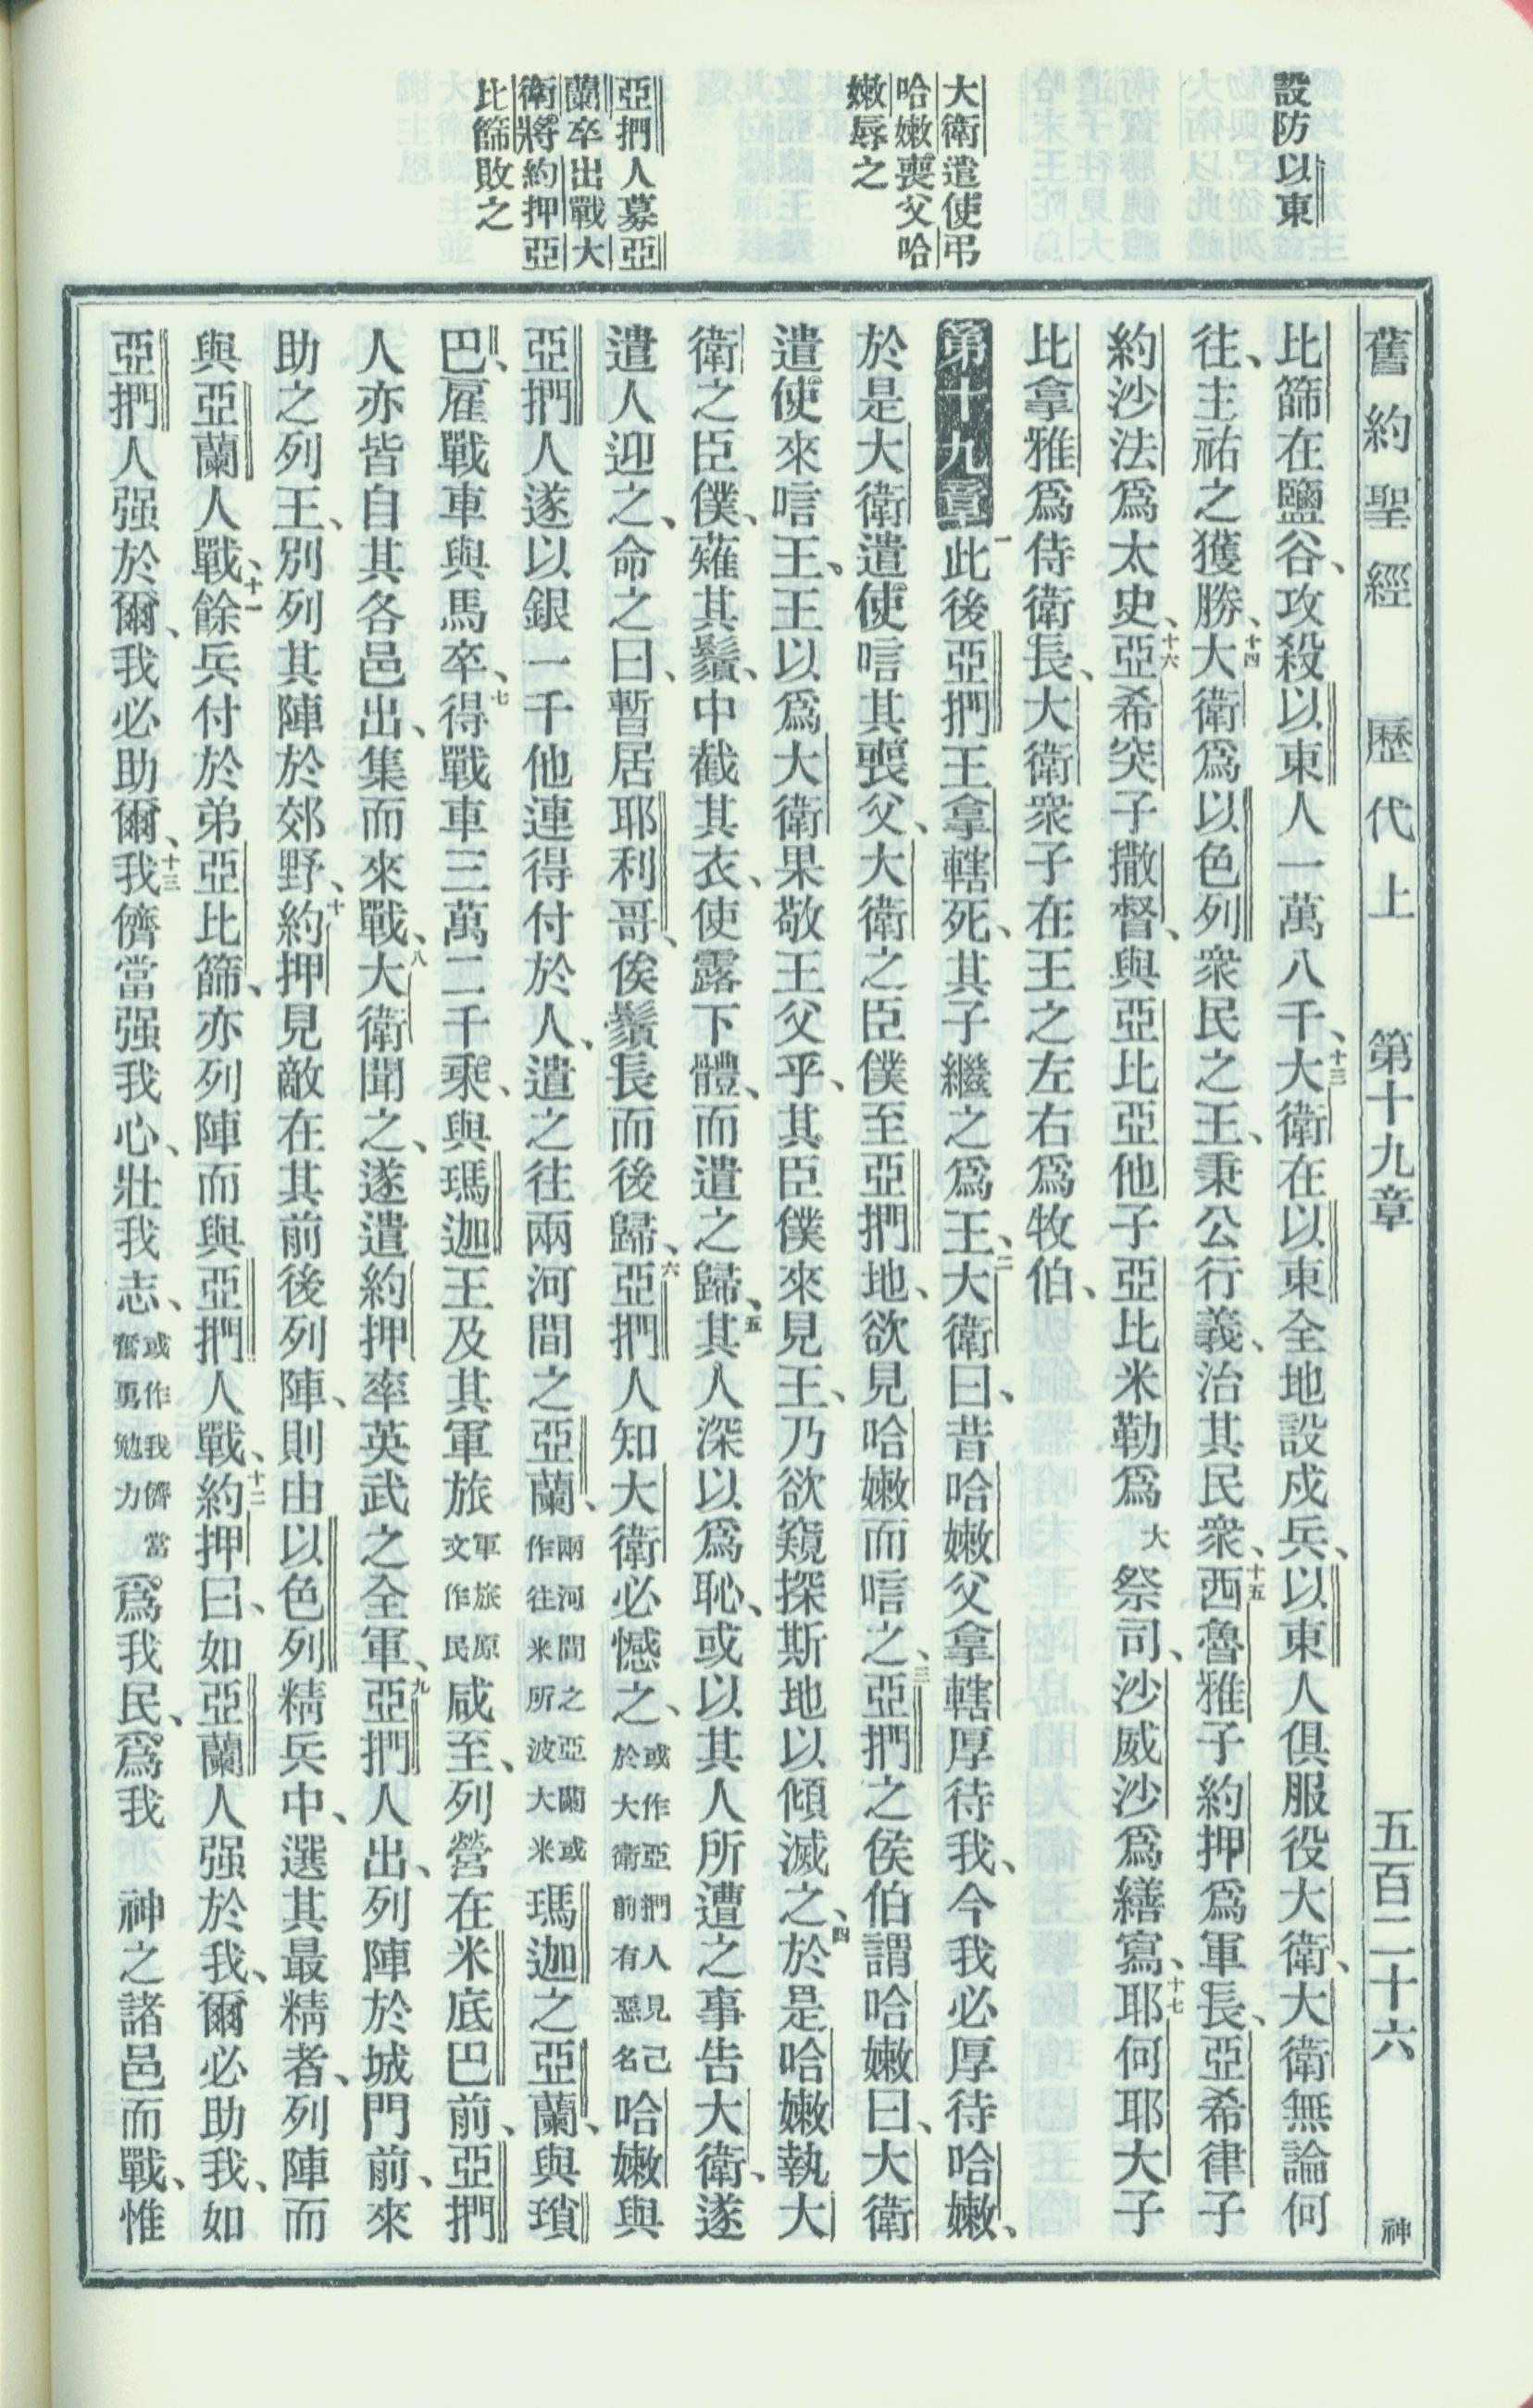 舊約聖經 歷代上 第十九章 五百二十六 神
設防以東
大衛遣使弔
哈嫩喪父哈
嫩辱之
亞捫人募亞
蘭卒出戰大
衛將約押亞
比篩敗之
比篩在鹽谷、攻殺以東人一萬八千、十三大衛在以東全地設戍兵、以東人俱服役大衛、大衛無論何
往、主祐之獲勝、十四大衛爲以色列衆民之王、秉公行義、治其民衆、十五西魯雅子約押爲軍長、亞希律子
約沙法爲太史、十六亞希突子撒督、與亞比亞他子亞比米勒爲大祭司、沙威沙爲繕寫、十七耶何耶大子
比拿雅爲侍衛長、大衛衆子在王之左右爲牧伯、
第十九章 一此後亞捫王拿轄死、其子繼之爲王、二大衛曰、昔哈嫩父拿轄厚待我、今我必厚待哈嫩、
於是大衛遣使唁其喪父、大衛之臣僕至亞捫地、欲見哈嫩而唁之、三亞捫之侯伯謂哈嫩曰、大衛
遣使來唁王、王以爲大衛果敬王父乎、其臣僕來見王、乃欲窺探斯地以傾滅之、四於是哈嫩執大
衛之臣僕、薙其鬚、中截其衣、使露下體、而遣之歸、五其人深以爲恥、或以其人所遭之事告大衛、遂
遣人迎之、命之曰、暫居耶利哥、俟鬚長而後歸、六亞捫人知大衛必憾之、或作亞捫人見己於大衛前有惡名哈嫩與
亞捫人遂以銀一千他連得付於人、遣之往兩河間之亞蘭、兩河間之亞蘭或作往米所波大米瑪迦之亞蘭、與瑣
巴、雇戰車與馬卒、七得戰車三萬二千乘、與瑪迦王及其軍旅軍旅原文作民咸至、列營在米底巴前、亞捫
人亦皆自其各邑出、集而來戰、八大衛聞之、遂遣約押率英武之全軍、九亞捫人出、列陣於城門前、來
助之列王、別列其陣於郊野、十約押見敵在其前後列陣、則由以色列精兵中、選其最精者、列陣而
與亞蘭人戰、十一餘兵付於弟亞比篩、亦列陣而與亞捫人戰、十二約押曰、如亞蘭人强於我、爾必助我、如
亞捫人强於爾、我必助爾、十三我儕當强我心、壯我志、或作我儕當奮勇勉力爲我民、爲我 神之諸邑而戰、惟